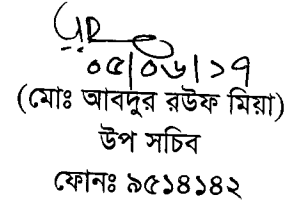 ০৫/০৬/১৭
(মোঃ আবদুর রউফ মিয়া)
উপ সচিব
ফোনঃ ৯৫১৪১৪২